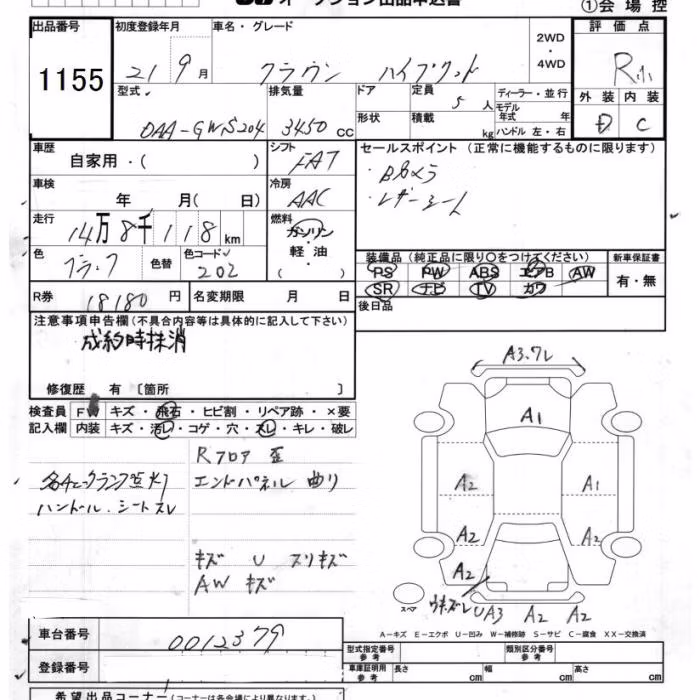 オークション出品申込書
①会場控
出品番号
1155
初度登録年月
21 9月
車名・グレード
クラウン ハイブリッド
2WD
・
4WD
評価点
R
外装 内装
D C
型式
DAA-GWS204
排気量
3450 CC
ドア
形状
定員
5人
積載
kg
ディーラー・並行
モデル年式 年
ハンドル 左・右
車歴
自家用・( )
シフト
FAT
セールスポイント (正常に機能するものに限ります)
・Bカメラ
・レザーシート
車検
年 月( 日)
冷房
AAC
走行
14万8千118km
燃料
ガソリン
軽油
色
ブラック
色替
色コード
202
装備品(純正品に限り○をつけてください)
PS PW ABS エアB AW
SR ナビ TV カワ
新車保証書
有・無
R券 18180円
名変期限 月 日
後日品
注意事項申告欄(不具合内容等は具体的に記入して下さい)
成約時抹消
修復歴 有 〔箇所 〕
検査員記入欄
FW キズ・飛石・ヒビ割・リペア跡・×要
内装 キズ・汚レ・コゲ・穴・スレ・キレ・破レ
Rフロア 歪
各チェックランプ点灯
エンドパネル 曲り
ハンドル、シートスレ
キズ U スリキズ
AW キズ
A3.7L
A1
A2 A1
A2 A2
A2
スペア
UA3 A2 A2
A-キズ E-エクボ U-凹み W-補修跡 S-サビ C-腐食 XX-交換済
車台番号
0012379
登録番号
型式指定番号
参考
類別区分番号
参考
車庫証明用
参考
長さ cm
幅 cm
高さ cm
希望出品コーナー(コーナーは各会場により異なります)